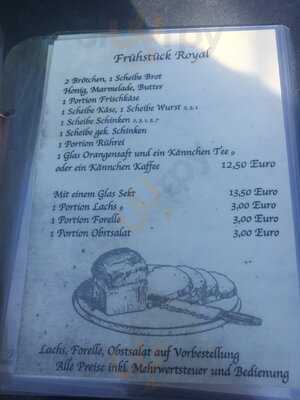 Frühstück Royal
2 Brötchen, 1 Scheibe Brot
Honig, Marmelade, Butter
1 Portion Frischkäse
1 Scheibe Käse, 1 Scheibe Wurst 2,3,1
1 Scheibe Schinken 2,3,1,5,7
1 Scheibe gek. Schinken
1 Portion Rührei
1 Glas Orangensaft und ein Kännchen Tee 9
oder ein Kännchen Kaffee 12,50 Euro
Mit einem Glas Sekt 13,50 Euro
1 Portion Lachs 9 3,00 Euro
1 Portion Forelle 3,00 Euro
1 Portion Obstsalat 3,00 Euro
Lachs, Forelle, Obstsalat auf Vorbestellung
Alle Preise inkl. Mehrwertsteuer und Bedienung